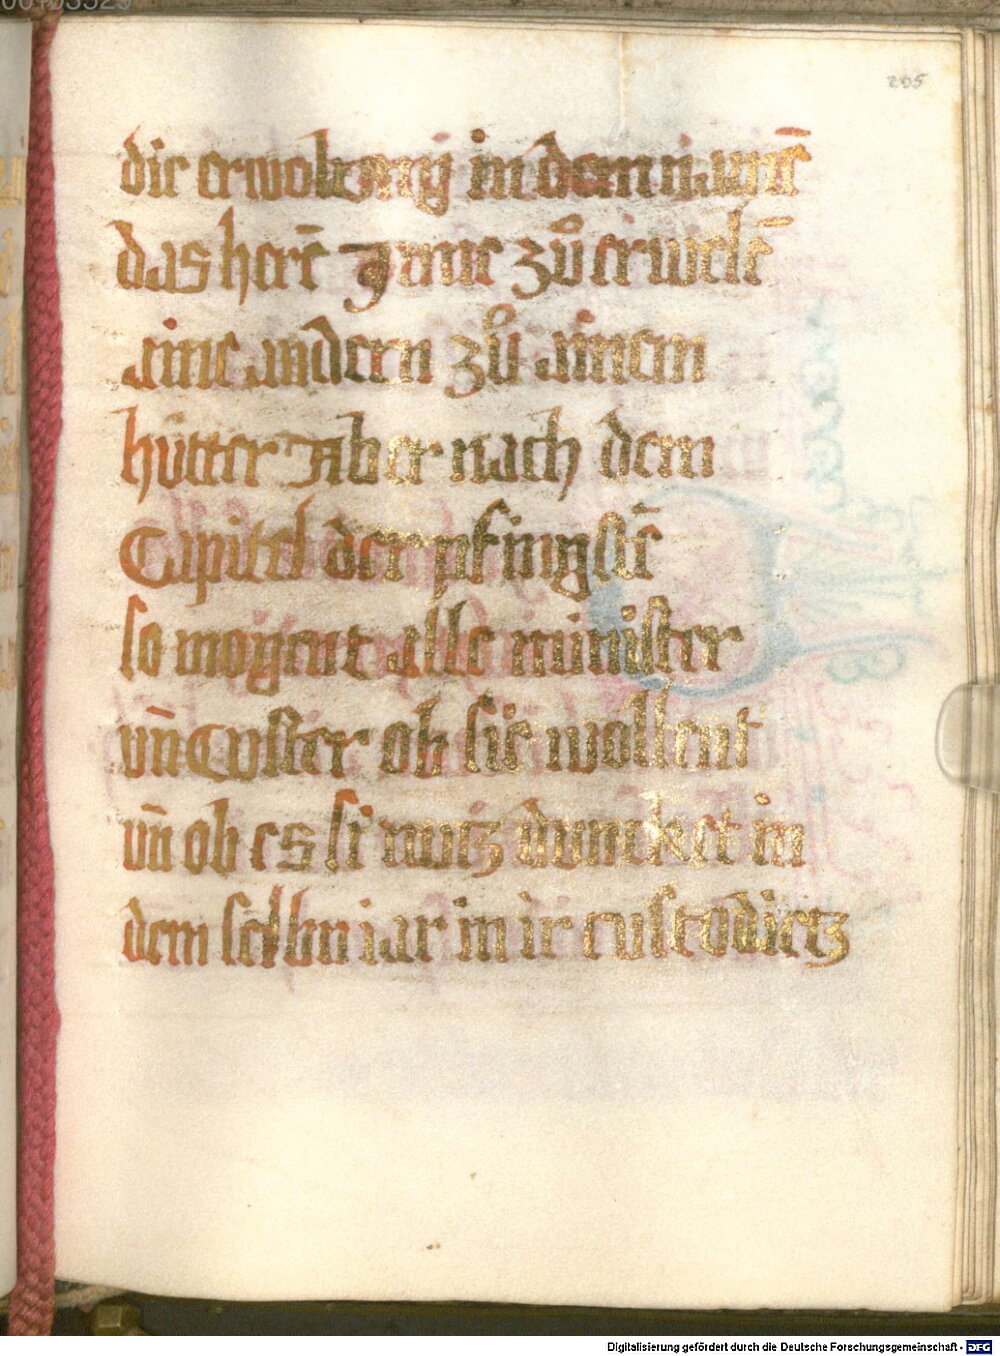 205
die erwolt
das here J nme zů erwelē
eine andern zů ainem
hütter Aber nach dem
Capitel der pfingstē
so mogent alle minister
vn̄ Custer ob sie woltent
vn̄ ob es si nutz duncket in
dem selbn iar in ir custodietz
Digitalisierung gefördert durch die Deutsche Forschungsgemeinschaft - DFG